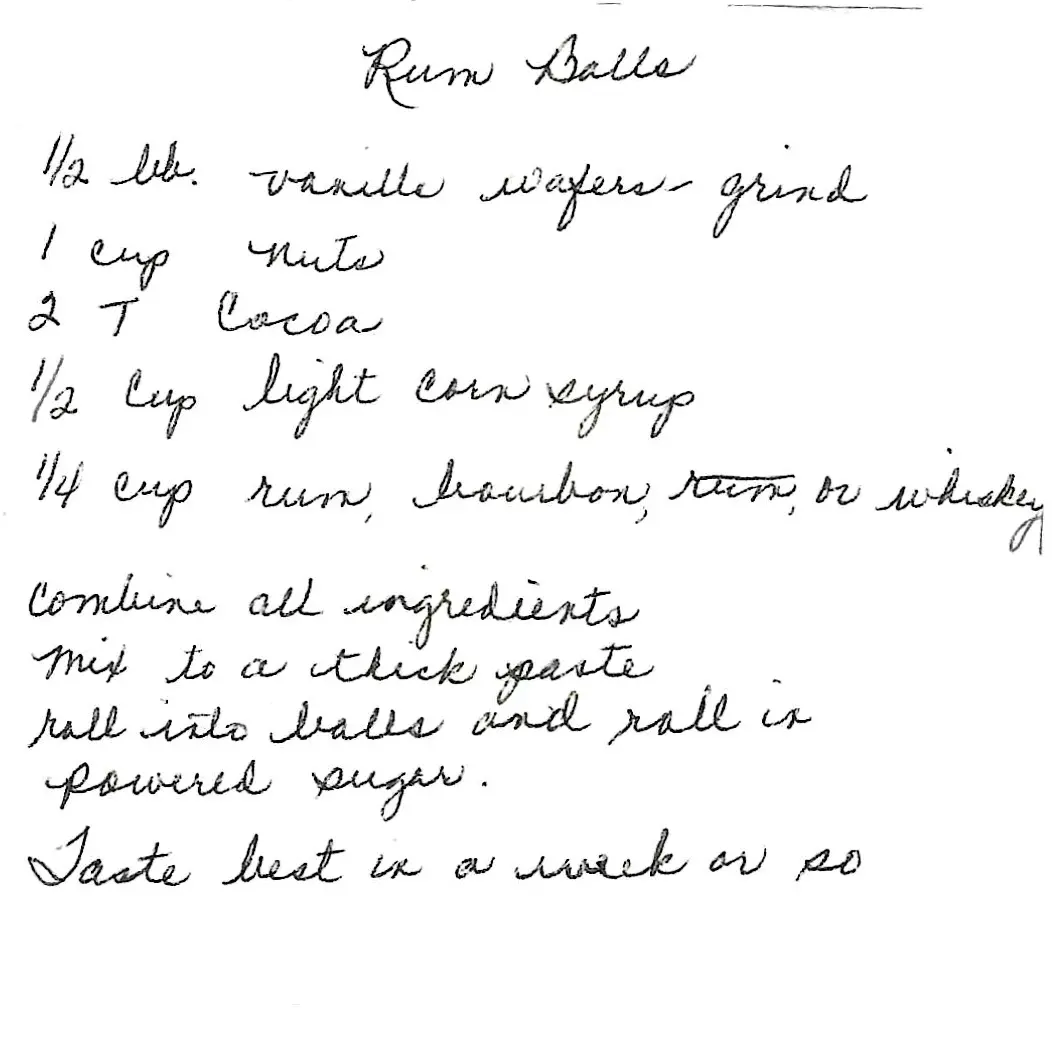 Rum Balls
1/2 lb. vanille wafers - grind
1 cup nuts
2 T Cocoa
1/2 Cup light corn syrup
1/4 cup rum, bourbon, rum, or whiskey
Combine all ingredients
Mix to a thick paste
roll into balls and roll in
powered sugar.
Taste best in a week or so